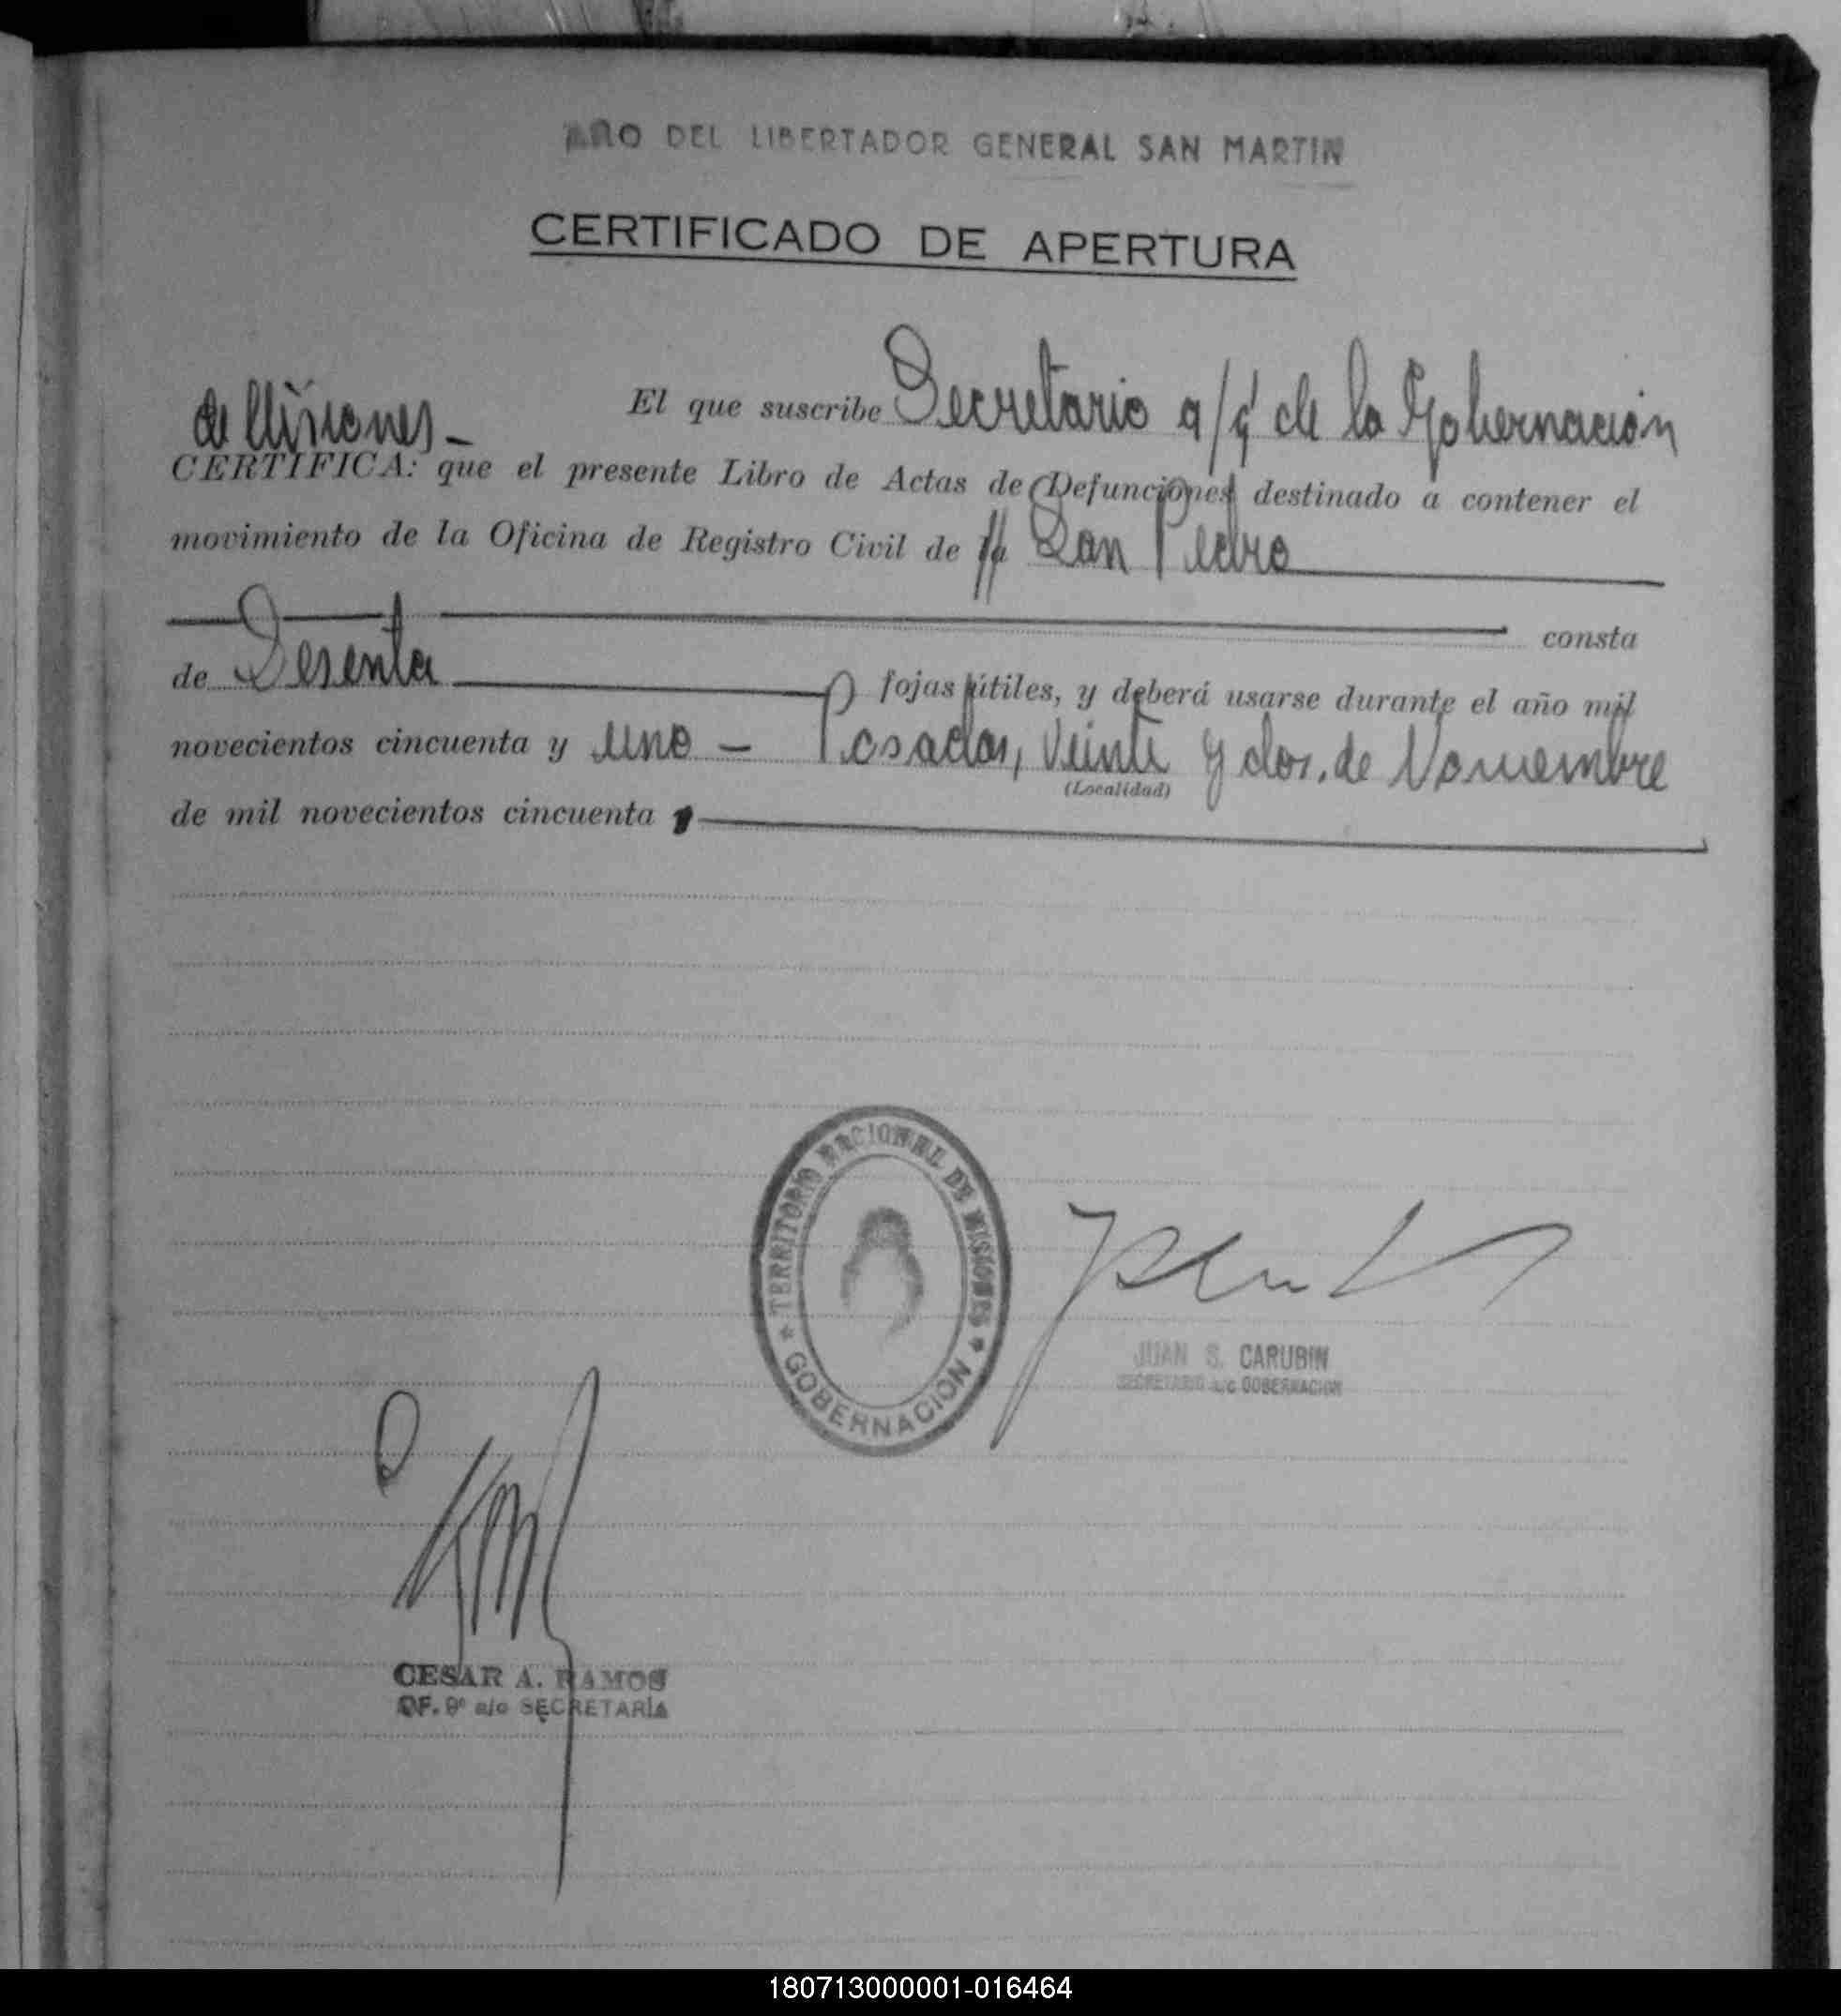 AÑO DEL LIBERTADOR GENERAL SAN MARTIN
CERTIFICADO DE APERTURA
El que suscribe Secretario a/c de la Gobernación
de Misiones -
CERTIFICA: que el presente Libro de Actas de Defunciones destinado a contener el
movimiento de la Oficina de Registro Civil de San Pedro
consta
de Sesenta fojas útiles, y deberá usarse durante el año mil
novecientos cincuenta y uno - Posadas, veinte y dos, de Noviembre
(Localidad)
de mil novecientos cincuenta
TERRITORIO NACIONAL DE MISIONES
GOBERNACION
JUAN S. CARUBIN
SECRETARIO a/c GOBERNACION
CESAR A. RAMOS
OF. 9º a/c SECRETARÍA
180713000001-016464